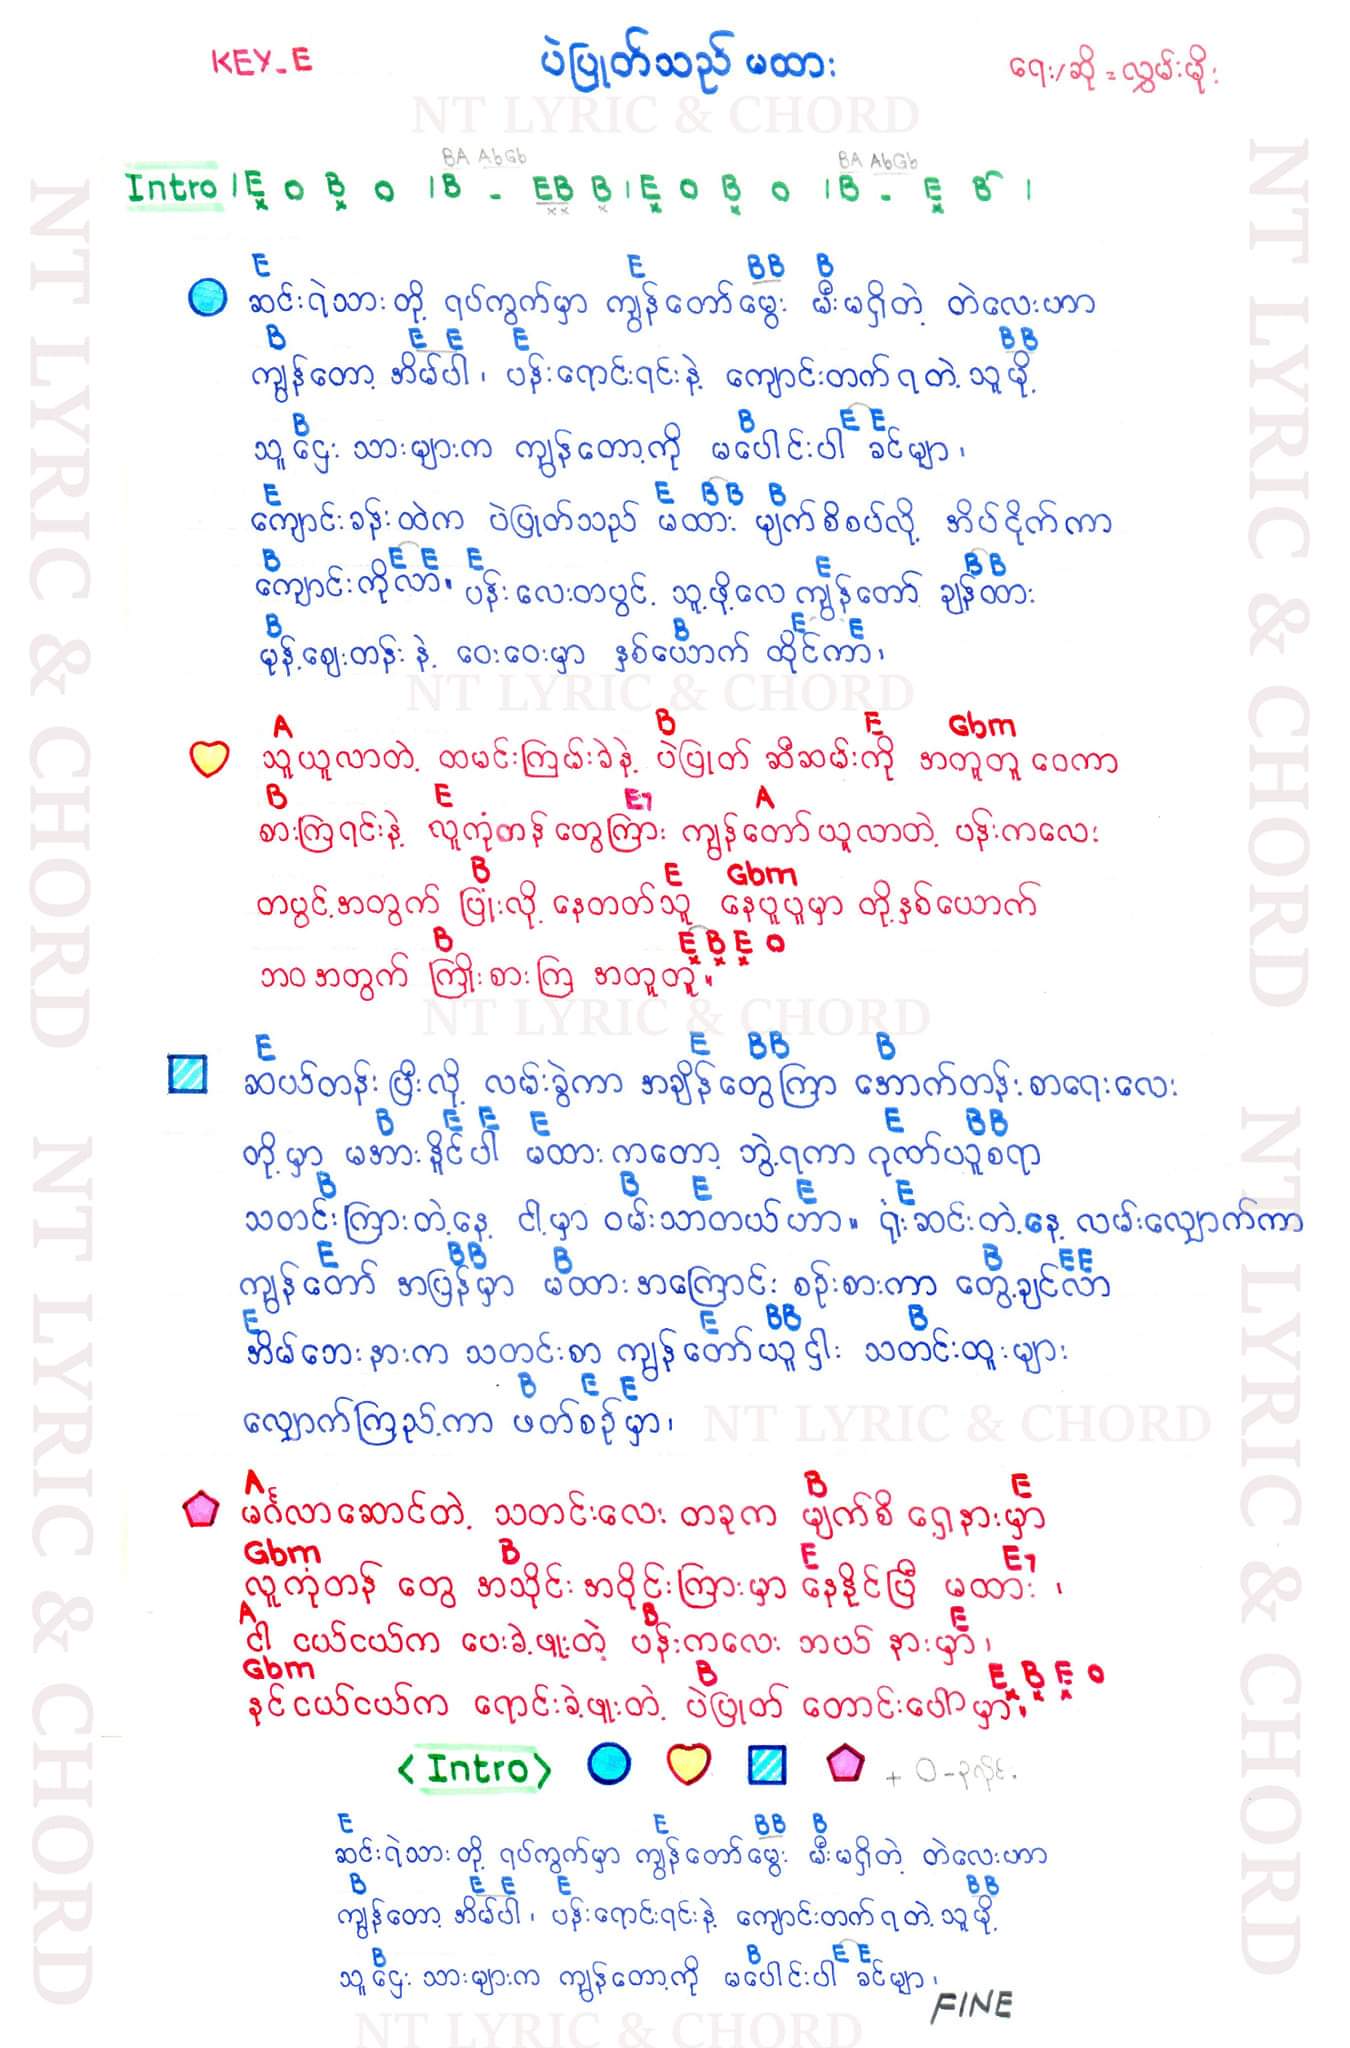 KEY_E
ပဲပြုတ်သည် မထား
ရေး/ဆို = လွှမ်းမိုး
NT LYRIC & CHORD
BA AbGb BA AbGb
Intro | E O B O | B - EB B | E O B O | B - E B |
E E BB B
ဆင်းရဲသားတို့ ရပ်ကွက်မှာ ကျွန်တော်မွေး မီးမရှိတဲ့ တဲလေးဟာ
B E E E BB
ကျွန်တော့ အိမ်ပါ၊ ပန်းရောင်းရင်းနဲ့ ကျောင်းတက်ရတဲ့ သူမို့
B B E E
သူဌေးသားများက ကျွန်တော့ကို မပေါင်းပါ ခင်မျာ၊
E E BB B
ကျောင်းခန်းထဲက ပဲပြုတ်သည် မထား မျက်စိစပ်လို့ အိပ်ငိုက်ကာ
B E E E E BB
ကျောင်းကိုလာ။ ပန်းလေးတပွင့် သူ့ဖို့လေ ကျွန်တော် ချန်ထား
B B E E
မုန့်ဈေးတန်းနဲ့ ဝေးဝေးမှာ နှစ်ယောက် ထိုင်ကာ၊
NT LYRIC & CHORD
A B E Gbm
သူယူလာတဲ့ ထမင်းကြမ်းခဲနဲ့ ပဲပြုတ် ဆီဆမ်းကို အတူတူ ဝေကာ
B E E7 A
စားကြရင်းနဲ့ လူကုံတန်တွေကြား ကျွန်တော်ယူလာတဲ့ ပန်းကလေး
B E Gbm
တပွင့်အတွက် ပြုံးလို့ နေတတ်သူ နေပူပူမှာ တို့နှစ်ယောက်
B E B E O
ဘဝအတွက် ကြိုးစားကြ အတူတူ။
NT LYRIC & CHORD
E E BB B
ဆယ်တန်းပြီးလို့ လမ်းခွဲကာ အချိန်တွေကြာ အောက်တန်းစာရေးလေး
B E E E E BB
တို့မှာ မအားနိူင်ပါ မထားကတော့ ဘွဲ့ရကာ ဂုဏ်ယူစရာ
B B E E E
သတင်းကြားတဲ့နေ့ ငါ့မှာ ဝမ်းသာတယ်ဟာ။ ရုံးဆင်းတဲ့နေ့ လမ်းလျှောက်ကာ
E BB B B EE
ကျွန်တော် အပြန်မှာ မထားအကြောင်း စဉ်းစားကာ တွေ့ချင်လာ
E E BB B
အိမ်ဘေးနားက သတင်းစာ ကျွန်တော်ယူငှါး သတင်းထူးများ
B E E
လျှောက်ကြည့်ကာ ဖတ်စဉ်မှာ၊
NT LYRIC & CHORD
A B E
မင်္ဂလာဆောင်တဲ့ သတင်းလေး တခုက မျက်စိ ရှေ့နားမှာ
Gbm B E E7
လူကုံတန်တွေ အသိုင်းအဝိုင်းကြားမှာ နေနိုင်ပြီ မထား၊
A B E
ငါ ငယ်ငယ်က ပေးခဲ့ဖူးတဲ့ ပန်းကလေး ဘယ်နားမှာ၊
Gbm B E B E O
နင်ငယ်ငယ်က ရောင်းခဲ့ဖူးတဲ့ ပဲပြုတ် တောင်းပေါ်မှာ။
<Intro> + O-၃
E E BB B
ဆင်းရဲသားတို့ ရပ်ကွက်မှာ ကျွန်တော်မွေး မီးမရှိတဲ့ တဲလေးဟာ
B E E E BB
ကျွန်တော့ အိမ်ပါ၊ ပန်းရောင်းရင်းနဲ့ ကျောင်းတက်ရတဲ့သူမို့
B B E E
သူဌေးသားများက ကျွန်တော့ကို မပေါင်းပါ ခင်မျာ၊
FINE
NT LYRIC & CHORD
NT LYRIC & CHORD
NT LYRIC & CHORD
NT LYRIC & CHORD
NT LYRIC & CHORD